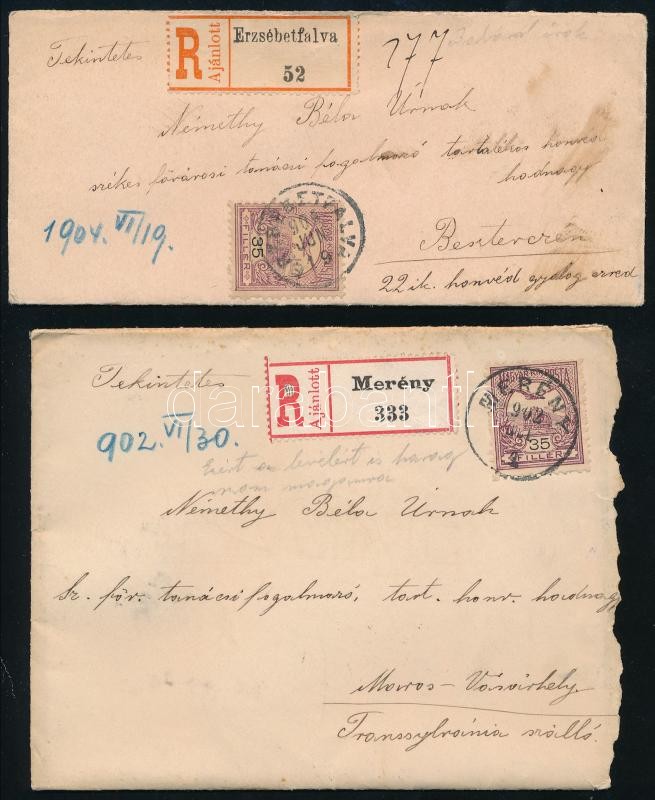 Tekintetes
R
Ajánlott
Erzsébetfalva
52
177
Némethy Béla Úrnak
székes fővárosi tanácsi fogalmazó tartalékos honvéd
hadnagy
1904. VI/19.
ERZSÉBETFALVA
35
FILLÉR
Beszterczén
22 ik. honvéd gyalog ezred
Tekintetes
R
Ajánlott
Merény
333
MERÉNY
902
35
FILLÉR
902. VI/30.
Ezért a levélért is harag
Némethy Béla Úrnak
Sz. föv. tanácsi fogalmazó, tart. honv. hadnagy
Maros-Vásárhely
Transsylvánia szálló.
darabanth